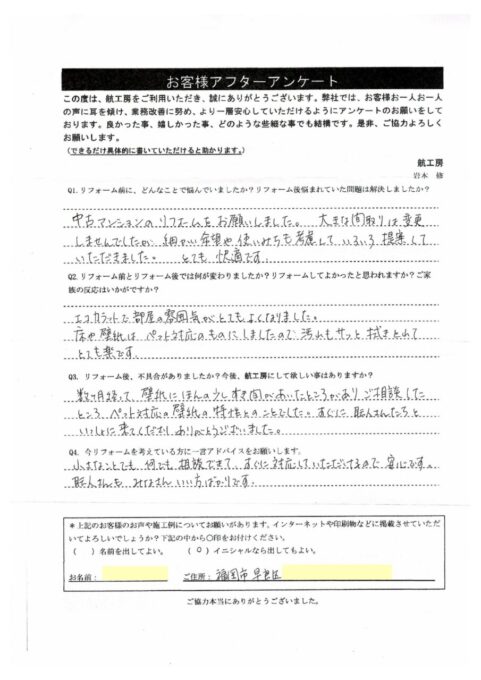 お客様アフターアンケート
この度は、航工房をご利用いただき、誠にありがとうございます。弊社では、お客様お一人お一人
の声に耳を傾け、業務改善に努め、より一層安心していただけるようにアンケートのお願いをして
おります。良かった事、嬉しかった事、どのような些細な事でも結構です。是非、ご協力よろしく
お願いします。
(できるだけ具体的に書いていただけると助かります。)
航工房
岩本 修
Q1.リフォーム前に、どんなことで悩んでいましたか?リフォーム後悩まれていた問題は解決しましたか?
中古マンションのリフォームをお願いしました。 大きな間取りは変更
しませんでしたが 細かい希望や使いみちも考慮して いろいろ 提案して
いただきました。 とても 快適です。
Q2.リフォーム前とリフォーム後では何が変わりましたか?リフォームしてよかったと思われますか?ご家
族の反応はいかがですか?
エコカラットで部屋の雰囲気がとてもよくなりました。
床や壁紙は ペット対応のものにしましたので 汚れもサッと 拭きとれて
とても楽です。
Q3. リフォーム後、不具合がありましたか?今後、航工房にして欲しい事はありますか?
数ヶ月経って、壁紙にほんの少しすき間があいたところがあり ご相談した
ところ ペット対応の壁紙の特性とのことでした。すぐに 職人さんたちと
いっしょに 来てくださり ありがとうございました。
Q4. 今リフォームを考えている方に一言アドバイスをお願いします。
小さなことでも 何でも 相談できて、すぐに 対応していただけるので 安心です。
職人さんも みなさん いい方ばかりです。
*上記のお客様のお声や施工例についてお願いがあります。インターネットや印刷物などに掲載させていただ
いてよろしいでしょうか?下記の中から○印をお付けください。
( ) 名前を出してよい。 ( ○ ) イニシャルなら出してもよい。
お名前: ご住所: 福岡市 早良区
ご協力本当にありがとうございました。